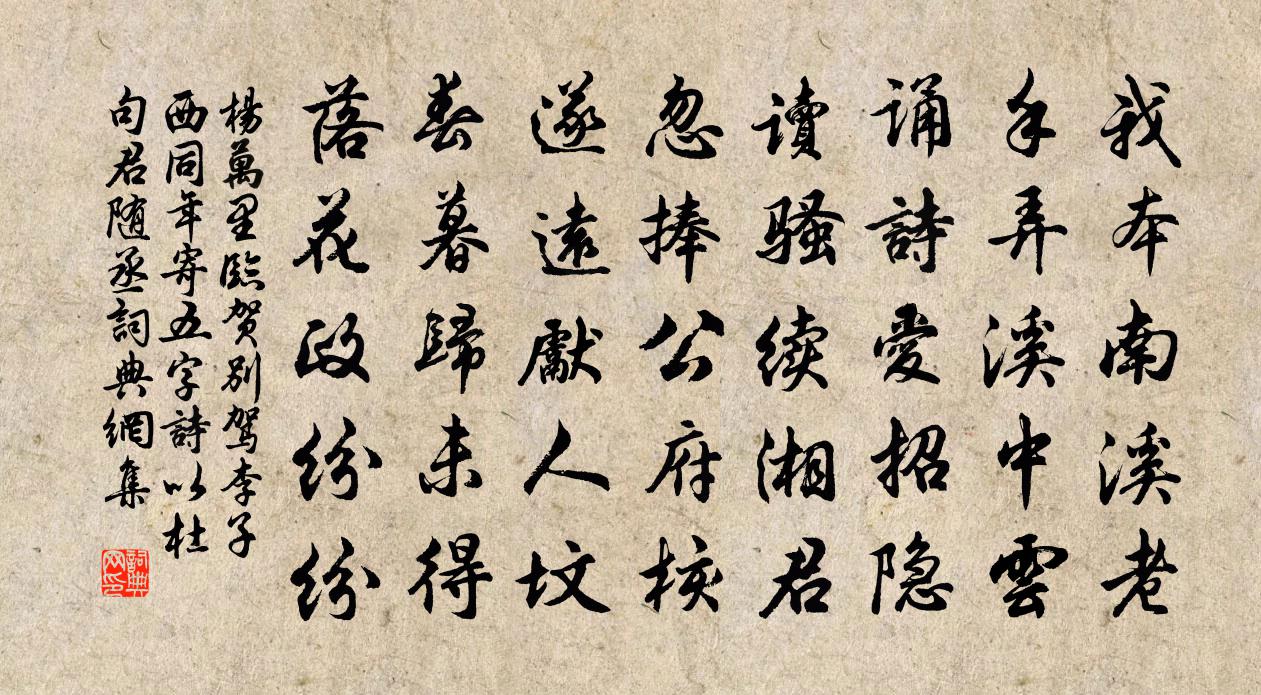 我本南溪老
手弄溪中雲
诵詩愛招隐
讀骚续湘君
忽捧公府檄
遂遠獻人坟
春暮歸未得
落花政纷纷
楊萬里臨贺别驾李子
西同年寄五字詩以杜
句君随丞詞典網集
詞典
网印